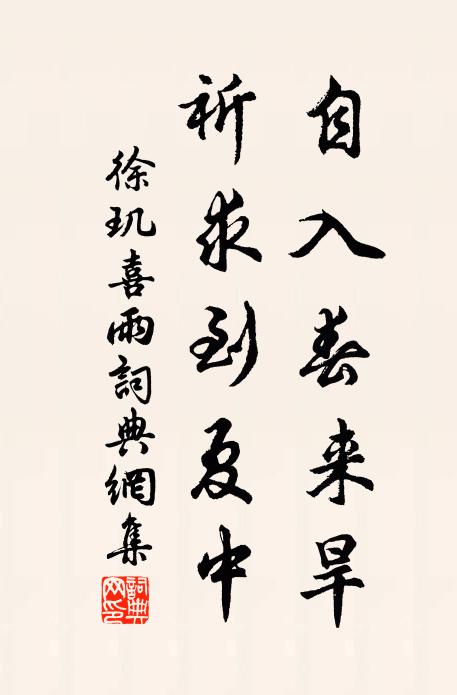 自入春来旱
祈求到夏中
徐玑喜雨詞典網集
詞典网印